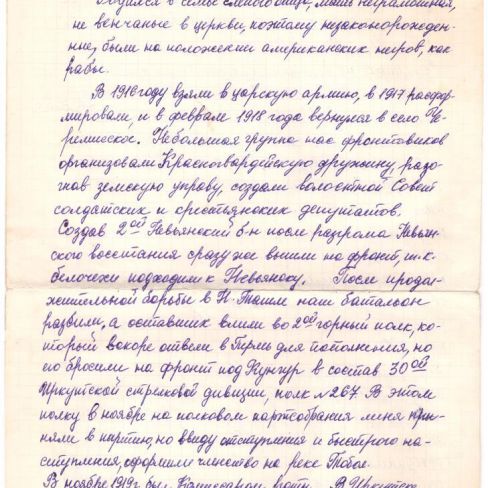 Родился в семье слепого отца, мать неграмотная,
не венчаные в церкви, поэтому незаконорожден-
ный, были на положении американских негров, как
рабы.
В 1916 году взяли в царскую армию, в 1917 расфор-
мировали, и в феврале 1918 года вернулся в село Че-
ремисское. Небольшая группа нас фронтовиков
организовали Красногвардейскую дружину, разо-
гнав земскую управу, создали волостной Совет
солдатских и крестьянских депутатов.
Создав 2ой Невьянский б-н после разгрома Невьян-
ского восстания сразу же вышли на фронт, т.к.
белочехи подходили к Невьянску. После продол-
жительной борьбы в Н-Тагиле наш батальон
разбили, а оставших влили во 2ой горный полк, ко-
торый вскоре отвели в Пермь для пополнения, но
его бросили на фронт под Кунгур в состав 30ой
Иркутской стрелковой дивизии, полк №267. В этом
полку в ноябре на полковом партсобрании меня при-
няли в партию, но ввиду отступления и быстрого на-
ступления, оформили членство на реке Тобол.
В ноябре 1919г был Комиссаром роты. В Иркутске